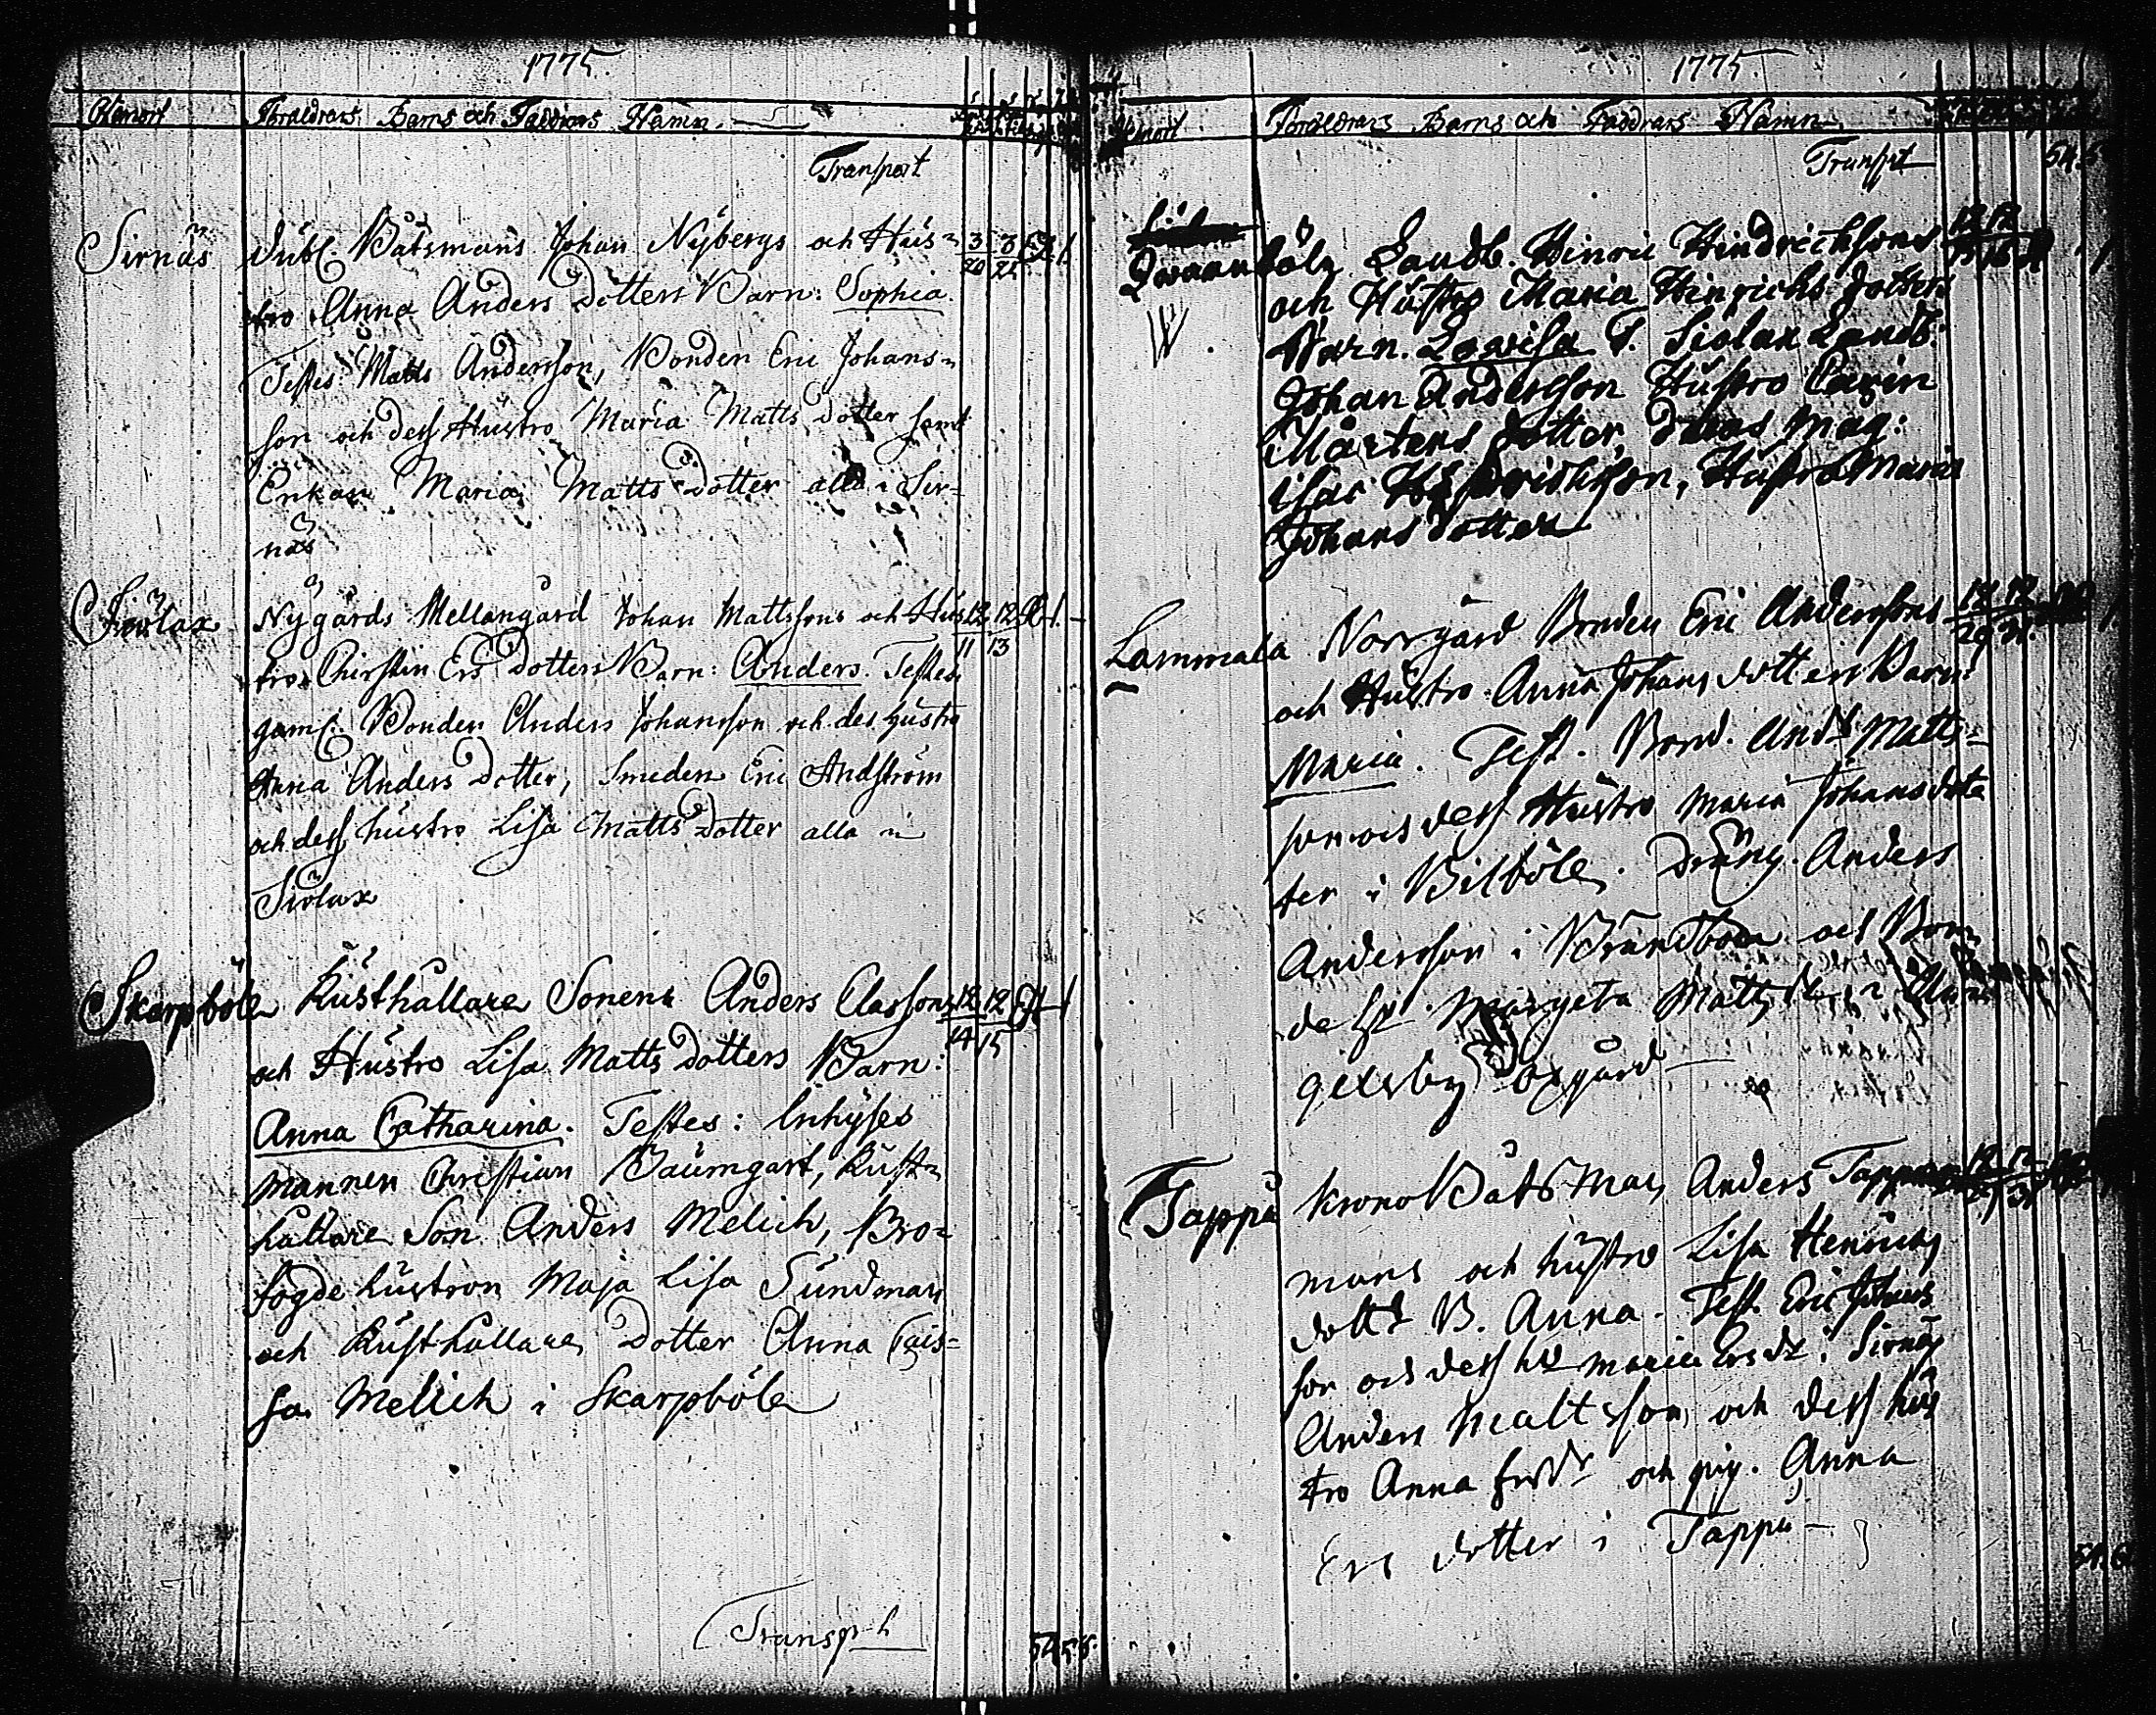 1775.
Hemort Föräldrars Barns och Faddrars Namn.
Transport
Sirnäs Dubl. Båtsmans Johan Nybergs och Hus= 3 3
20 21
tro Anna Anders Dotters Barn: Sophia.
Testes: Matts Andersson, Bonden Eric Johans=
son och dess Hustro Maria Matts dotter samt
Enkan Maria Matts Dotter alla i Sir=
näs
Siölax Nygårds Mellangård Johan Mattssons och Hus 12 12
11 13
tros Chirstin Ers Dotters Barn: Anders. Testes
gaml. Bonden Anders Johansson och des hustro
Anna Anders Dotter, Smeden Eric Andström
och dess hustro Lisa Matts Dotter alla i
Siölax
Skarpböle Rusthållare Sonens Anders Classons 12 12
14 15
och Hustro Lisa Matts Dotters Barn:
Anna Catharina. Testes: Inhyses
mannen Christian Baumgart, Rust=
hållare Son Anders Melich, Bro=
fogde hustron Maja Lisa Sundman
och Rusthållare Dotter Anna Cais=
sa Melich i Skarpböle
Transp
54. 55.
1775.
Hemort Föräldrars Barns och Faddrars Namn
Transpt 54. 5
böle Landb. Hinric Hindrichsons 12 12
15 16
och Hustro Maria Hinrichs dotters
Barn. Lovisa T. Siolax Landb.
Johan Andersson Hustro Carin
Mårtens dotter, mag:
Isac Hindrichson, Hustro Maria
Johans dotter
Lammala Norrgård Bonden Eric Anderssons 12 12
29 31.
och Hustro Anna Johans dotters Barn:
Maria. Test. Bond. Ands Matts=
son och dess Hustro Maria Johans dot
ter i Bilböle. Dräng. Anders
Andersson i Brandboda och Bon
de Margeta Matts
gelsby
Tappu Krono Båtsman Anders Tapp 12 12
31
mans och hustro Lisa Henrichs
dottr B. Anna. Test. Eric Johans
son och dess Maria Ers dr i Sirnäs
Anders Mattsson och dess hus
tro Anna och pig. Anna
Ers dotter i Tappu
54. 6